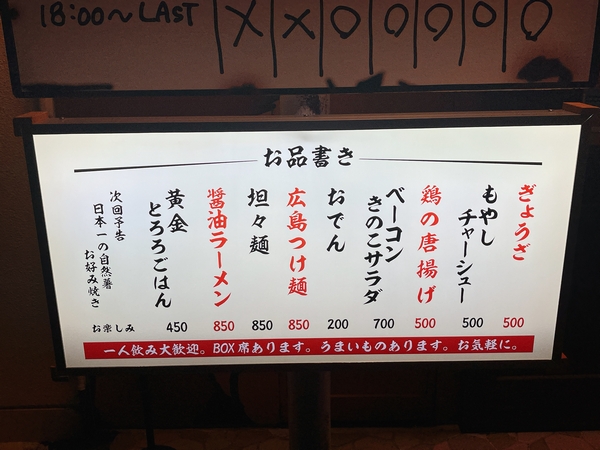 18:00〜LAST X X O O O O O
お品書き
ぎょうざ
500
もやし
チャーシュー
500
鶏の唐揚げ
500
ベーコン
きのこサラダ
700
おでん
200
広島つけ麺
850
坦々麺
850
醤油ラーメン
850
黄金
とろろごはん
450
次回予告
日本一の自然薯
お好み焼き
お楽しみ
一人飲み大歓迎。BOX席あります。うまいものあります。お気軽に。